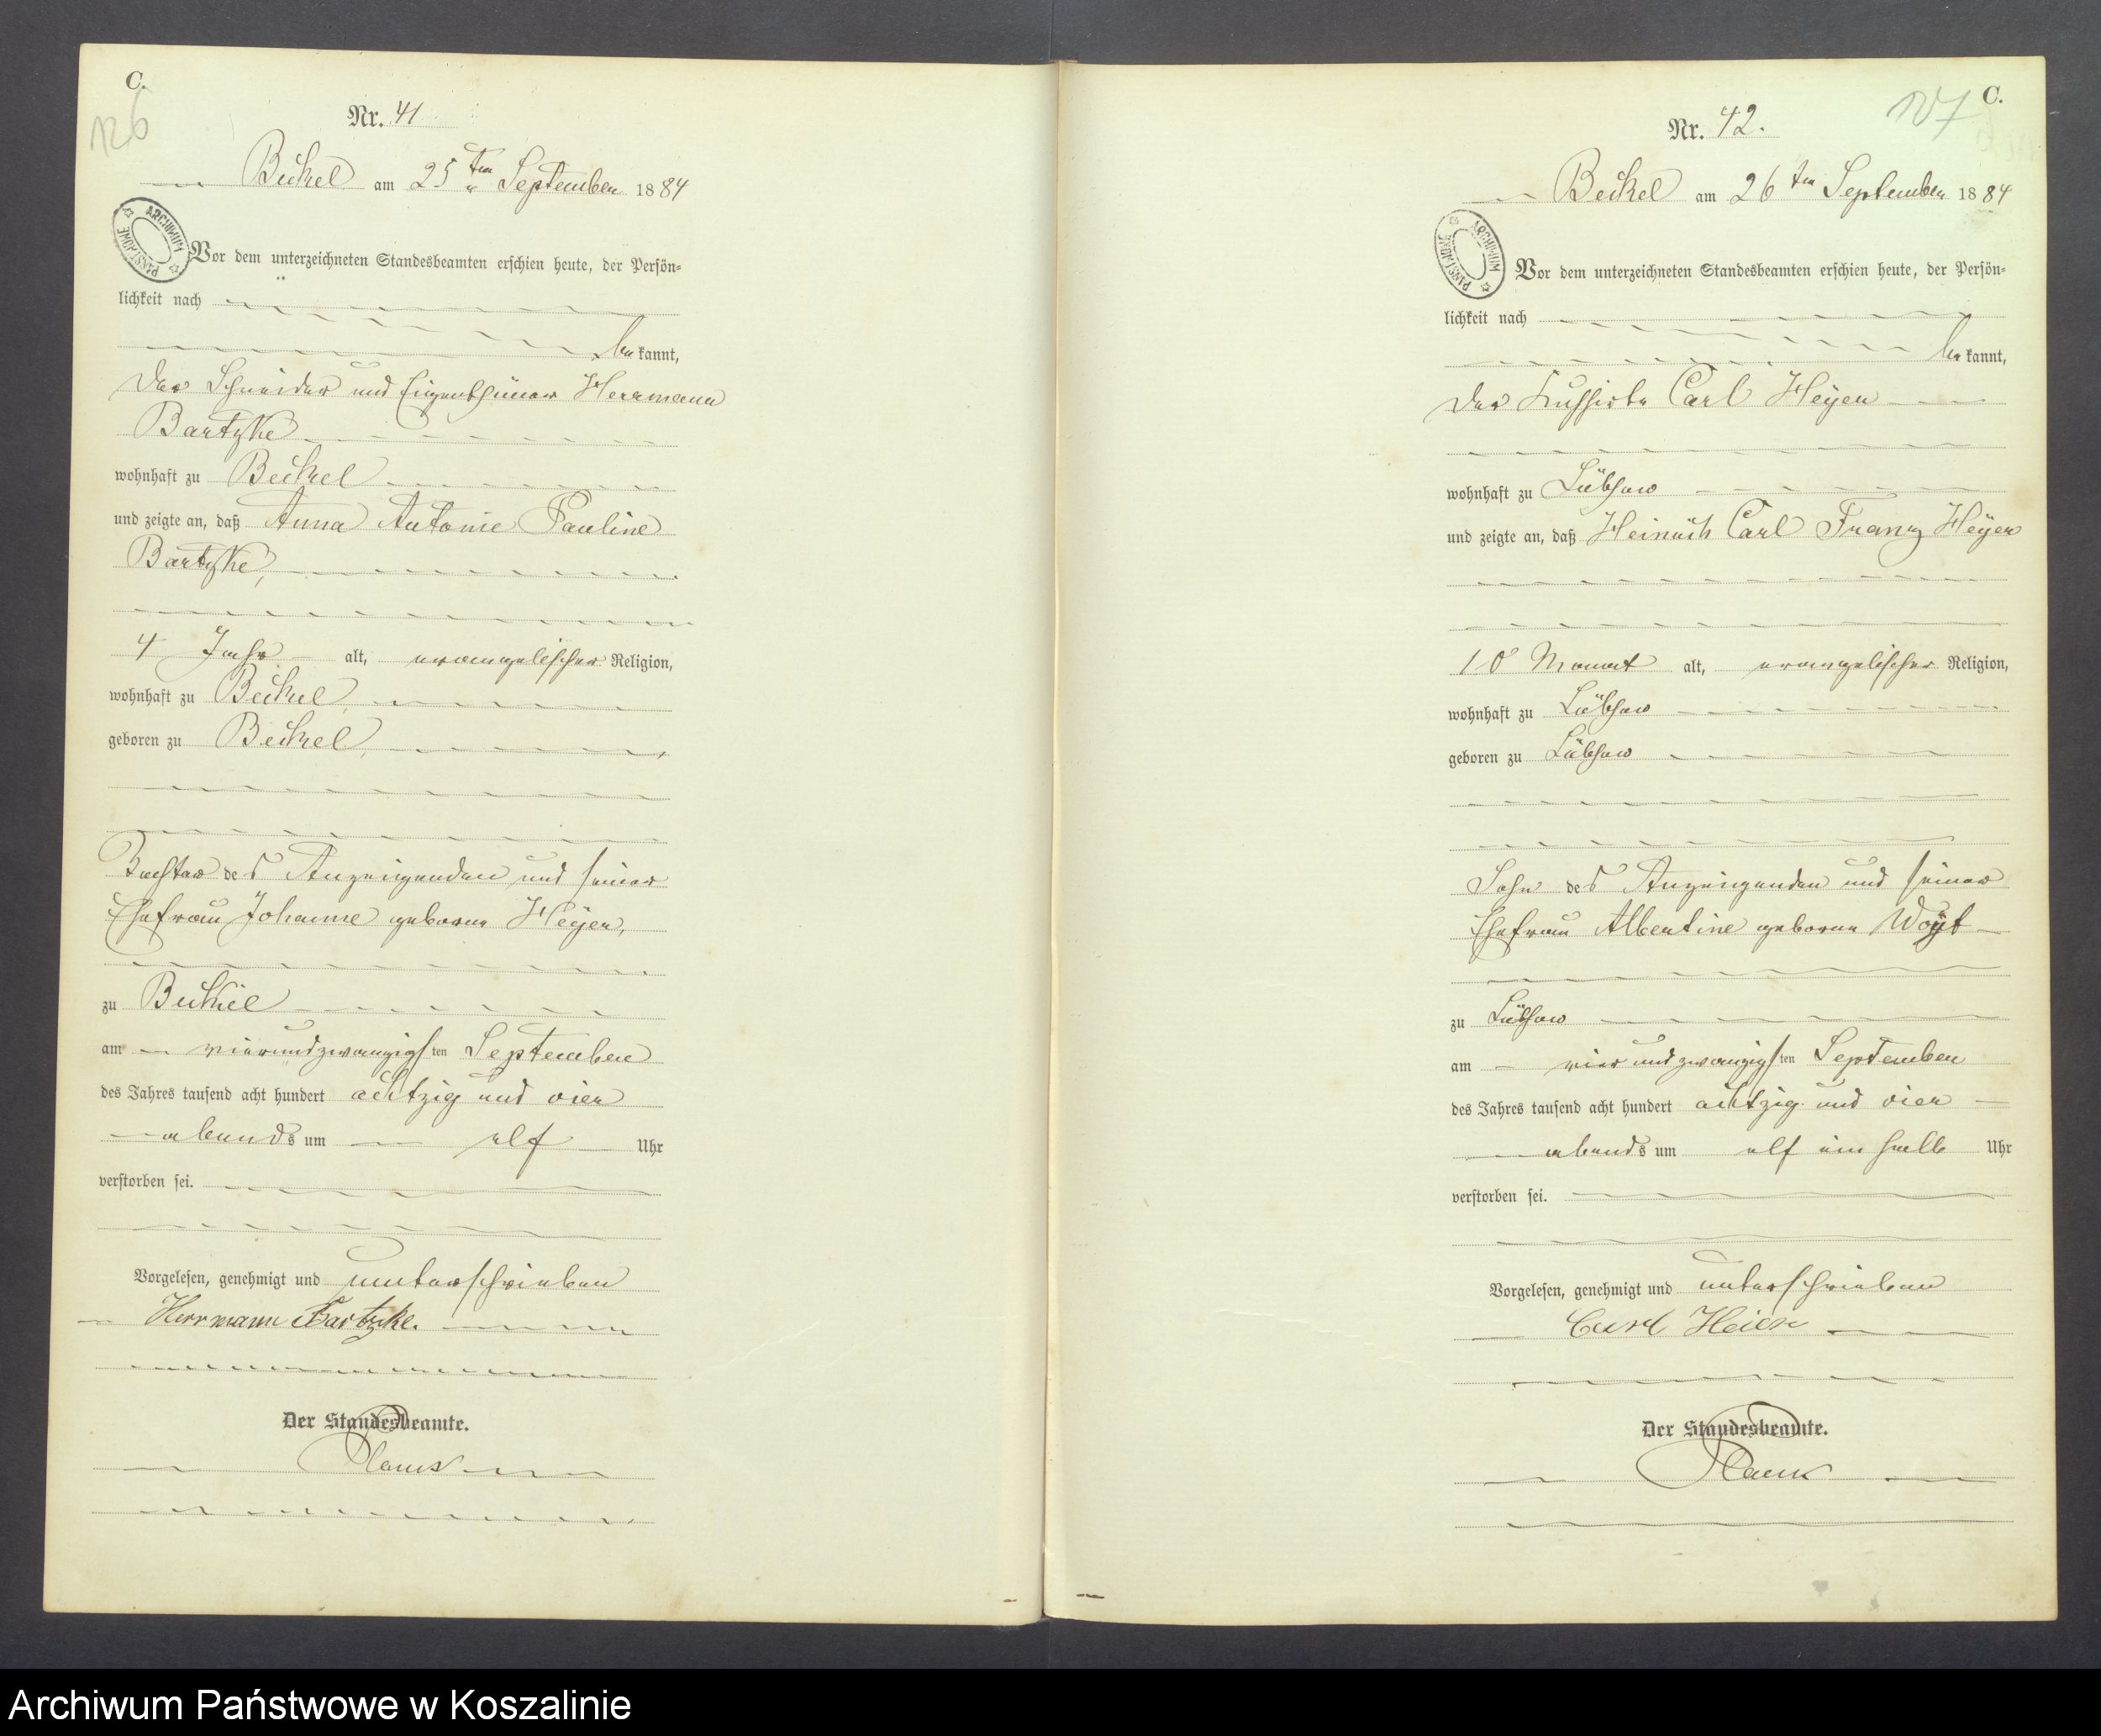 C.
126
Nr. 41
Beckel am 25ten September 1884
ARCHIWUM PAŃSTWOWE
Vor dem unterzeichneten Standesbeamten erschien heute, der Persön-
lichkeit nach
bekannt,
der Schneider und Eigenthümer Herrmann
Bartzke
wohnhaft zu Beckel
und zeigte an, daß Anna Antonie Pauline
Bartzke,
4 Jahr alt, evangelischer Religion,
wohnhaft zu Beckel
geboren zu Beckel,
Tochter des Anzeigenden und seiner
Ehefrau Johanne geborne Heyer,
zu Beckel
am vierundzwanzigsten September
des Jahres tausend acht hundert achtzig und vier
abends um elf Uhr
verstorben sei.
Vorgelesen, genehmigt und unterschrieben
Herrmann Bartzke.
Der Standesbeamte.
C.
127
Nr. 42.
Beckel am 26ten September 1884
ARCHIWUM PAŃSTWOWE
Vor dem unterzeichneten Standesbeamten erschien heute, der Persön-
lichkeit nach
bekannt,
der Carl Heyer
wohnhaft zu Lübzow
und zeigte an, daß Heinrich Carl Franz Heyer
10 Monat alt, evangelischer Religion,
wohnhaft zu Lübzow
geboren zu Lübzow
Sohn des Anzeigenden und seiner
Ehefrau Albertine geborne Woyt
zu Lübzow
am vierundzwanzigsten September
des Jahres tausend acht hundert achtzig und vier
abends um elf ein halb Uhr
verstorben sei.
Vorgelesen, genehmigt und unterschrieben
Carl Heier
Der Standesbeamte.
Archiwum Państwowe w Koszalinie